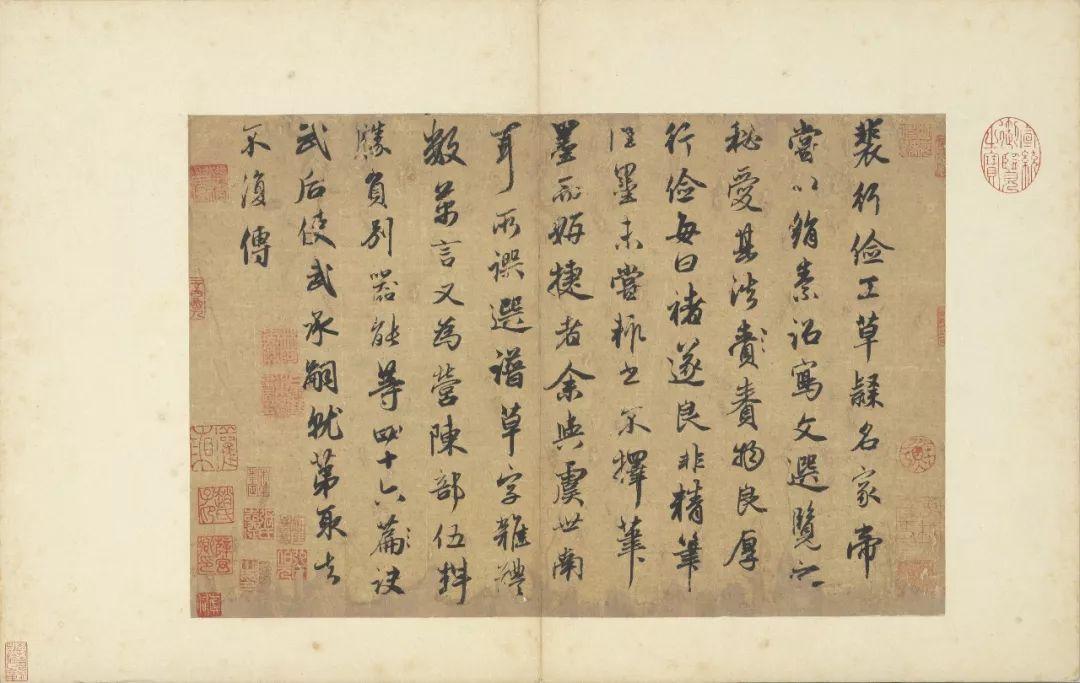 裴行俭工草隸名家帝
嘗以絹素詔寫文選覽之
秘愛其法賷賚物良厚
行俭每曰褚遂良非精筆
佳墨未嘗輒書不擇筆
墨而妍捷者余與虞世南
耳所譔選譜草字雜體
数萬言又為營陳部伍料
勝負別器能等四十六篇訣
武后使武承嗣就第取去
不復傳
宣統御覽之寶